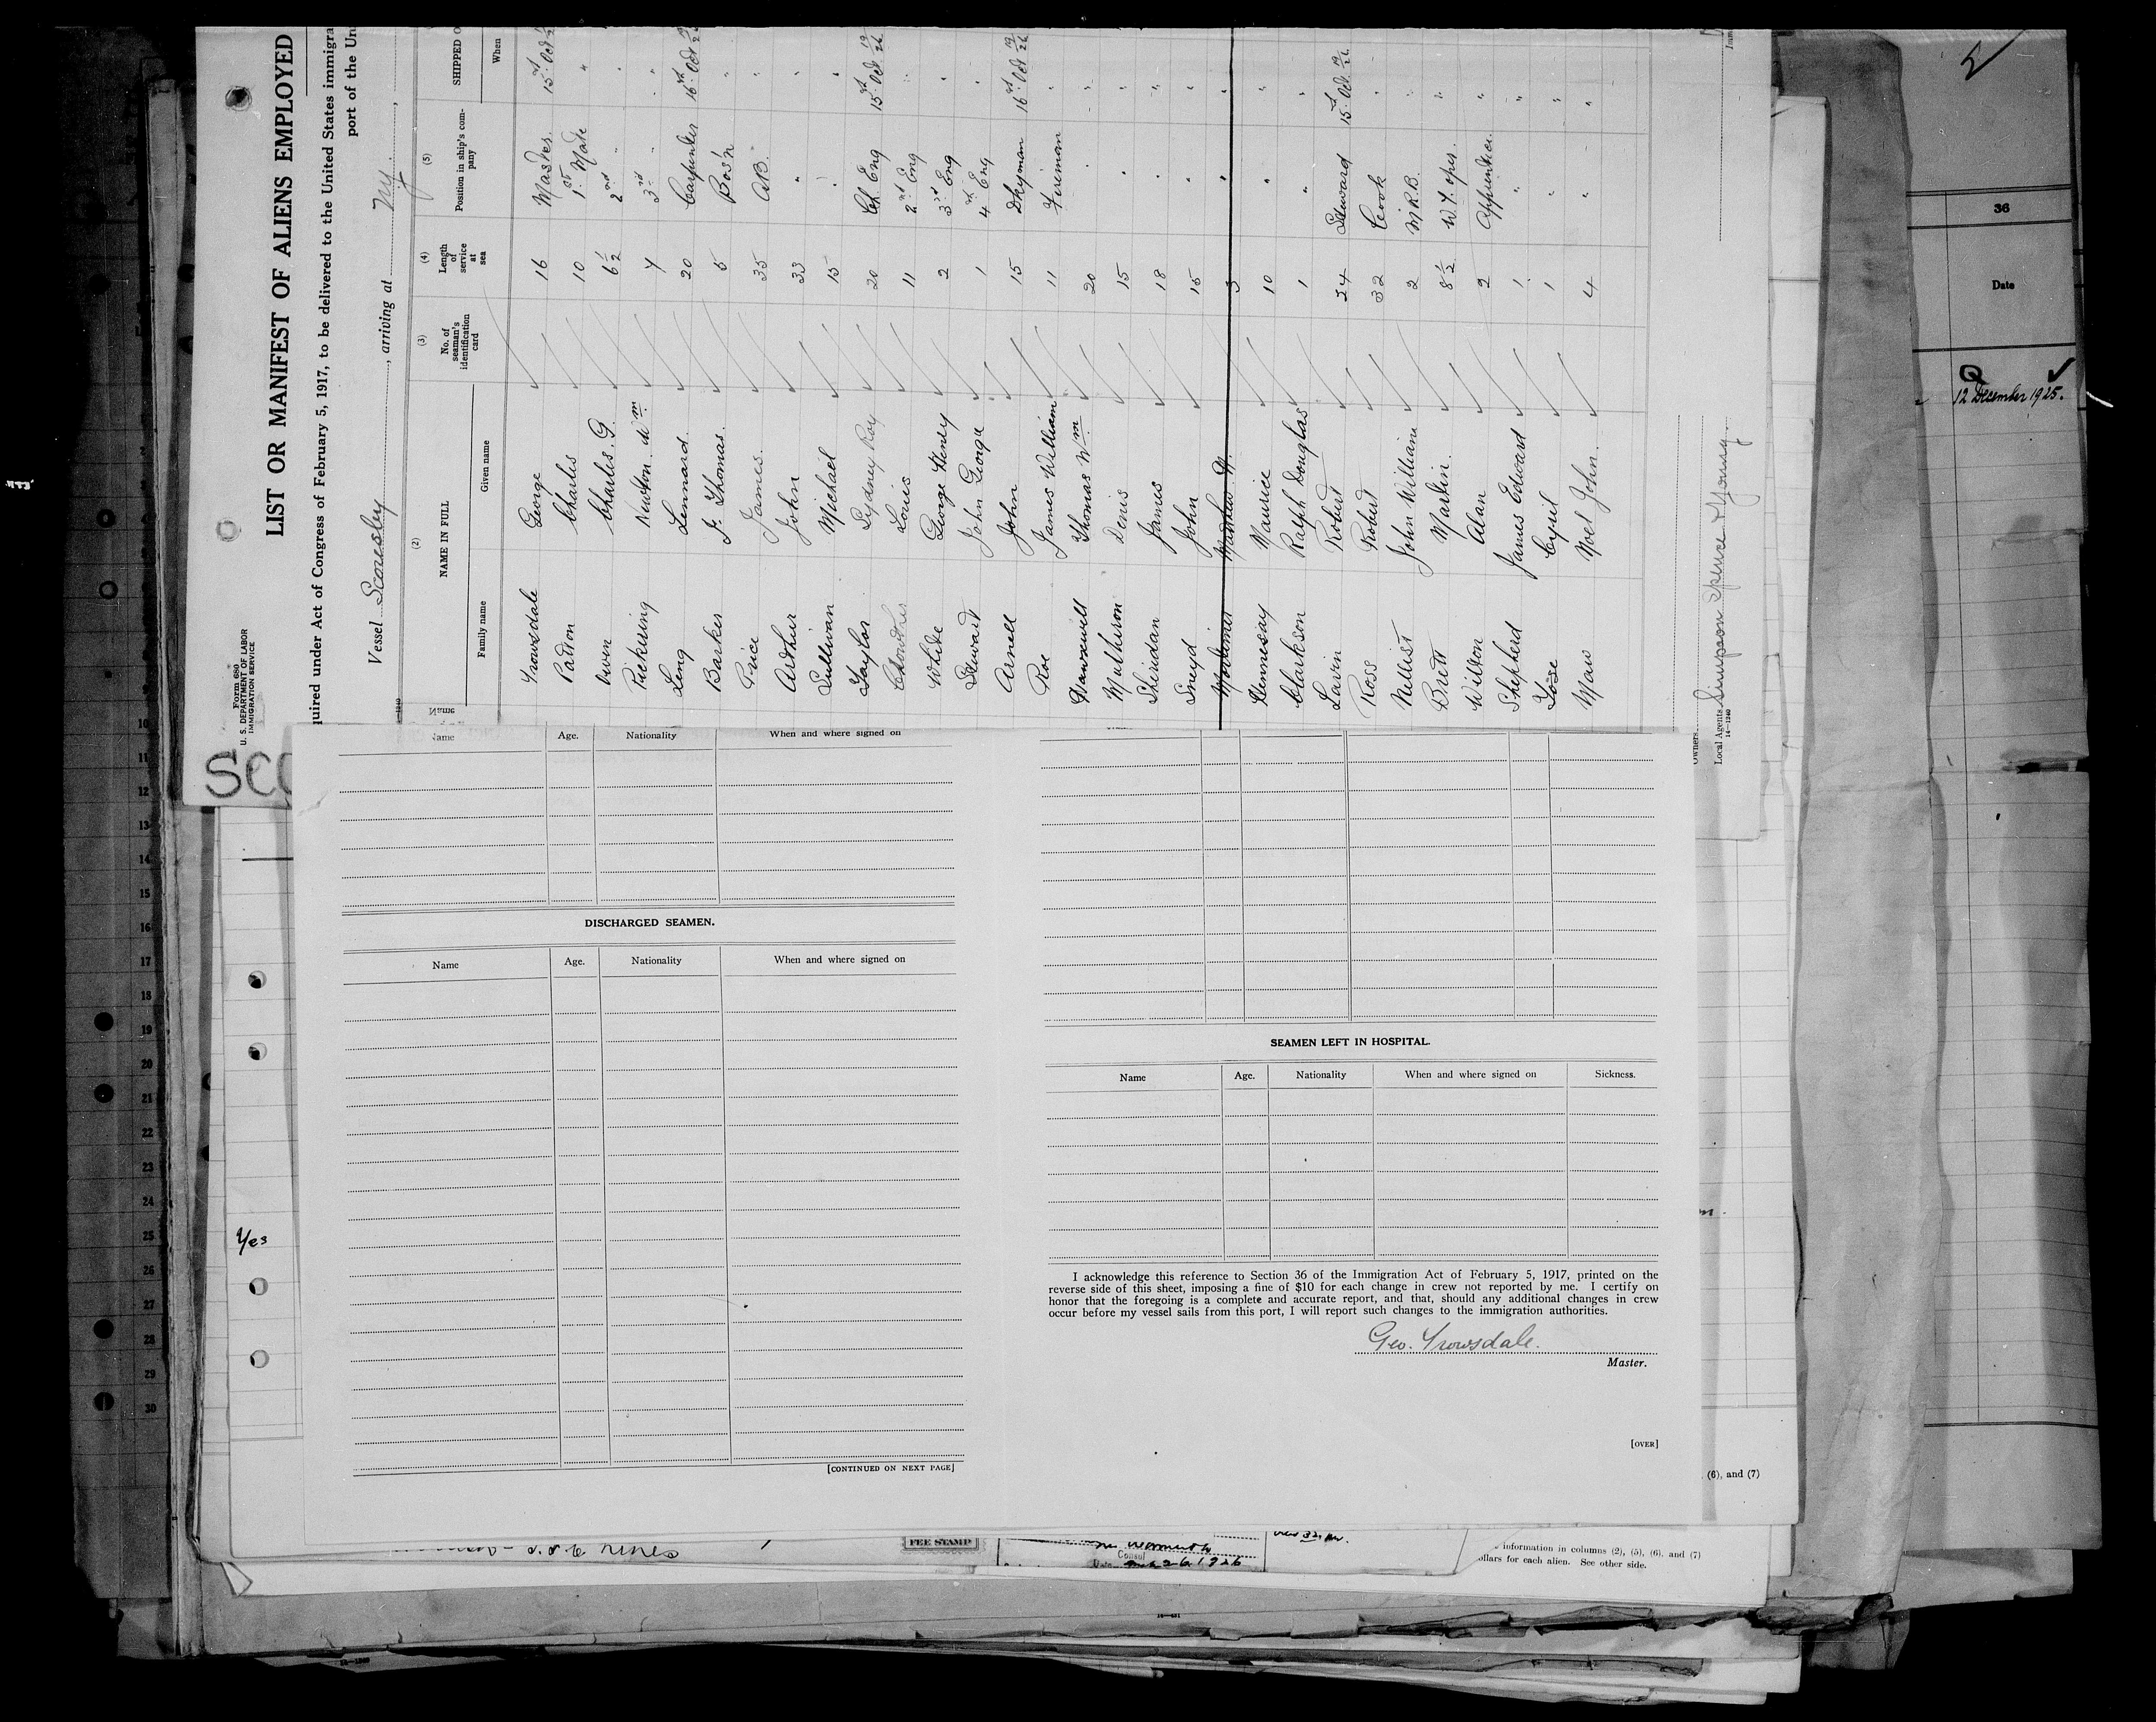 Form 680
U. S. DEPARTMENT OF LABOR
IMMIGRATION SERVICE
LIST OR MANIFEST OF ALIENS EMPLOYED
quired under Act of Congress of February 5, 1917, to be delivered to the United States immigra
port of the Un
Vessel Scoresby, arriving at Ny.
(2) (3) (4) (5)
NAME IN FULL No. of seaman's identification card Length of service at sea Position in ship's company SHIPPED O
Family name Given name When
Trowsdale George 16 Master 15 Oct
Patton Charles 10 1st Mate "
Owen Charles. G. 6½ 2nd "
Pickering Newton. Wm. 3rd "
Leng Lennard. 20 Carpenter 16 Oct 19/26
Barker J. Thomas. 5 Bos'n "
Price James. 35 AB. "
Arthur John 33 " "
Sullivan Michael 15 " "
Taylor Sydney Roy 20 Ch. Eng 15 Oct 19/26
Crowther Louis 11 2nd Eng "
White George Henry 2 3rd Eng "
Stewart John George 1 4 Eng "
Arnell John 15 Dkyman 16 Oct 19/26
Roe James William 11 Fireman "
Thomas Wm 20 " "
Mulheron Denis 15 " "
Sheridan James 18 " "
Sneyd John 15 " "
Mortimer Matthew 3 " "
Hennesay Maurice 10 " "
Clarkson Ralph Douglas 1 " "
Larin Robert 24 Steward 15 Oct 19/26
Ross Robert 32 Cook "
Nellist John William 2 M.R.B. "
Brett Martin. 8½ W.T. oper. "
Wilton Alan 2 Apprentice. "
Shepherd James Edward 1 " "
Tose Cyril 1 " "
Maw Noel John. 4 " "
Owners
Local Agents Simpson Spence & Young
14—1240
SCO
Name Age. Nationality When and where signed on
DISCHARGED SEAMEN.
Name Age. Nationality When and where signed on
[CONTINUED ON NEXT PAGE]
SEAMEN LEFT IN HOSPITAL.
Name Age. Nationality When and where signed on Sickness.
I acknowledge this reference to Section 36 of the Immigration Act of February 5, 1917, printed on the
reverse side of this sheet, imposing a fine of $10 for each change in crew not reported by me. I certify on
honor that the foregoing is a complete and accurate report, and that, should any additional changes in crew
occur before my vessel sails from this port, I will report such changes to the immigration authorities.
Geo. Trowsdale.
Master.
[OVER]
36
Date
12 December 1925.
10
11
12
13
14
15
16
17
18
19
20
21
22
23
24
25
26
27
28
29
30
Yes
, (6), and (7)
FEE STAMP
Consul
26 1926
information in columns (2), (5), (6), and (7)
ollars for each alien. See other side.